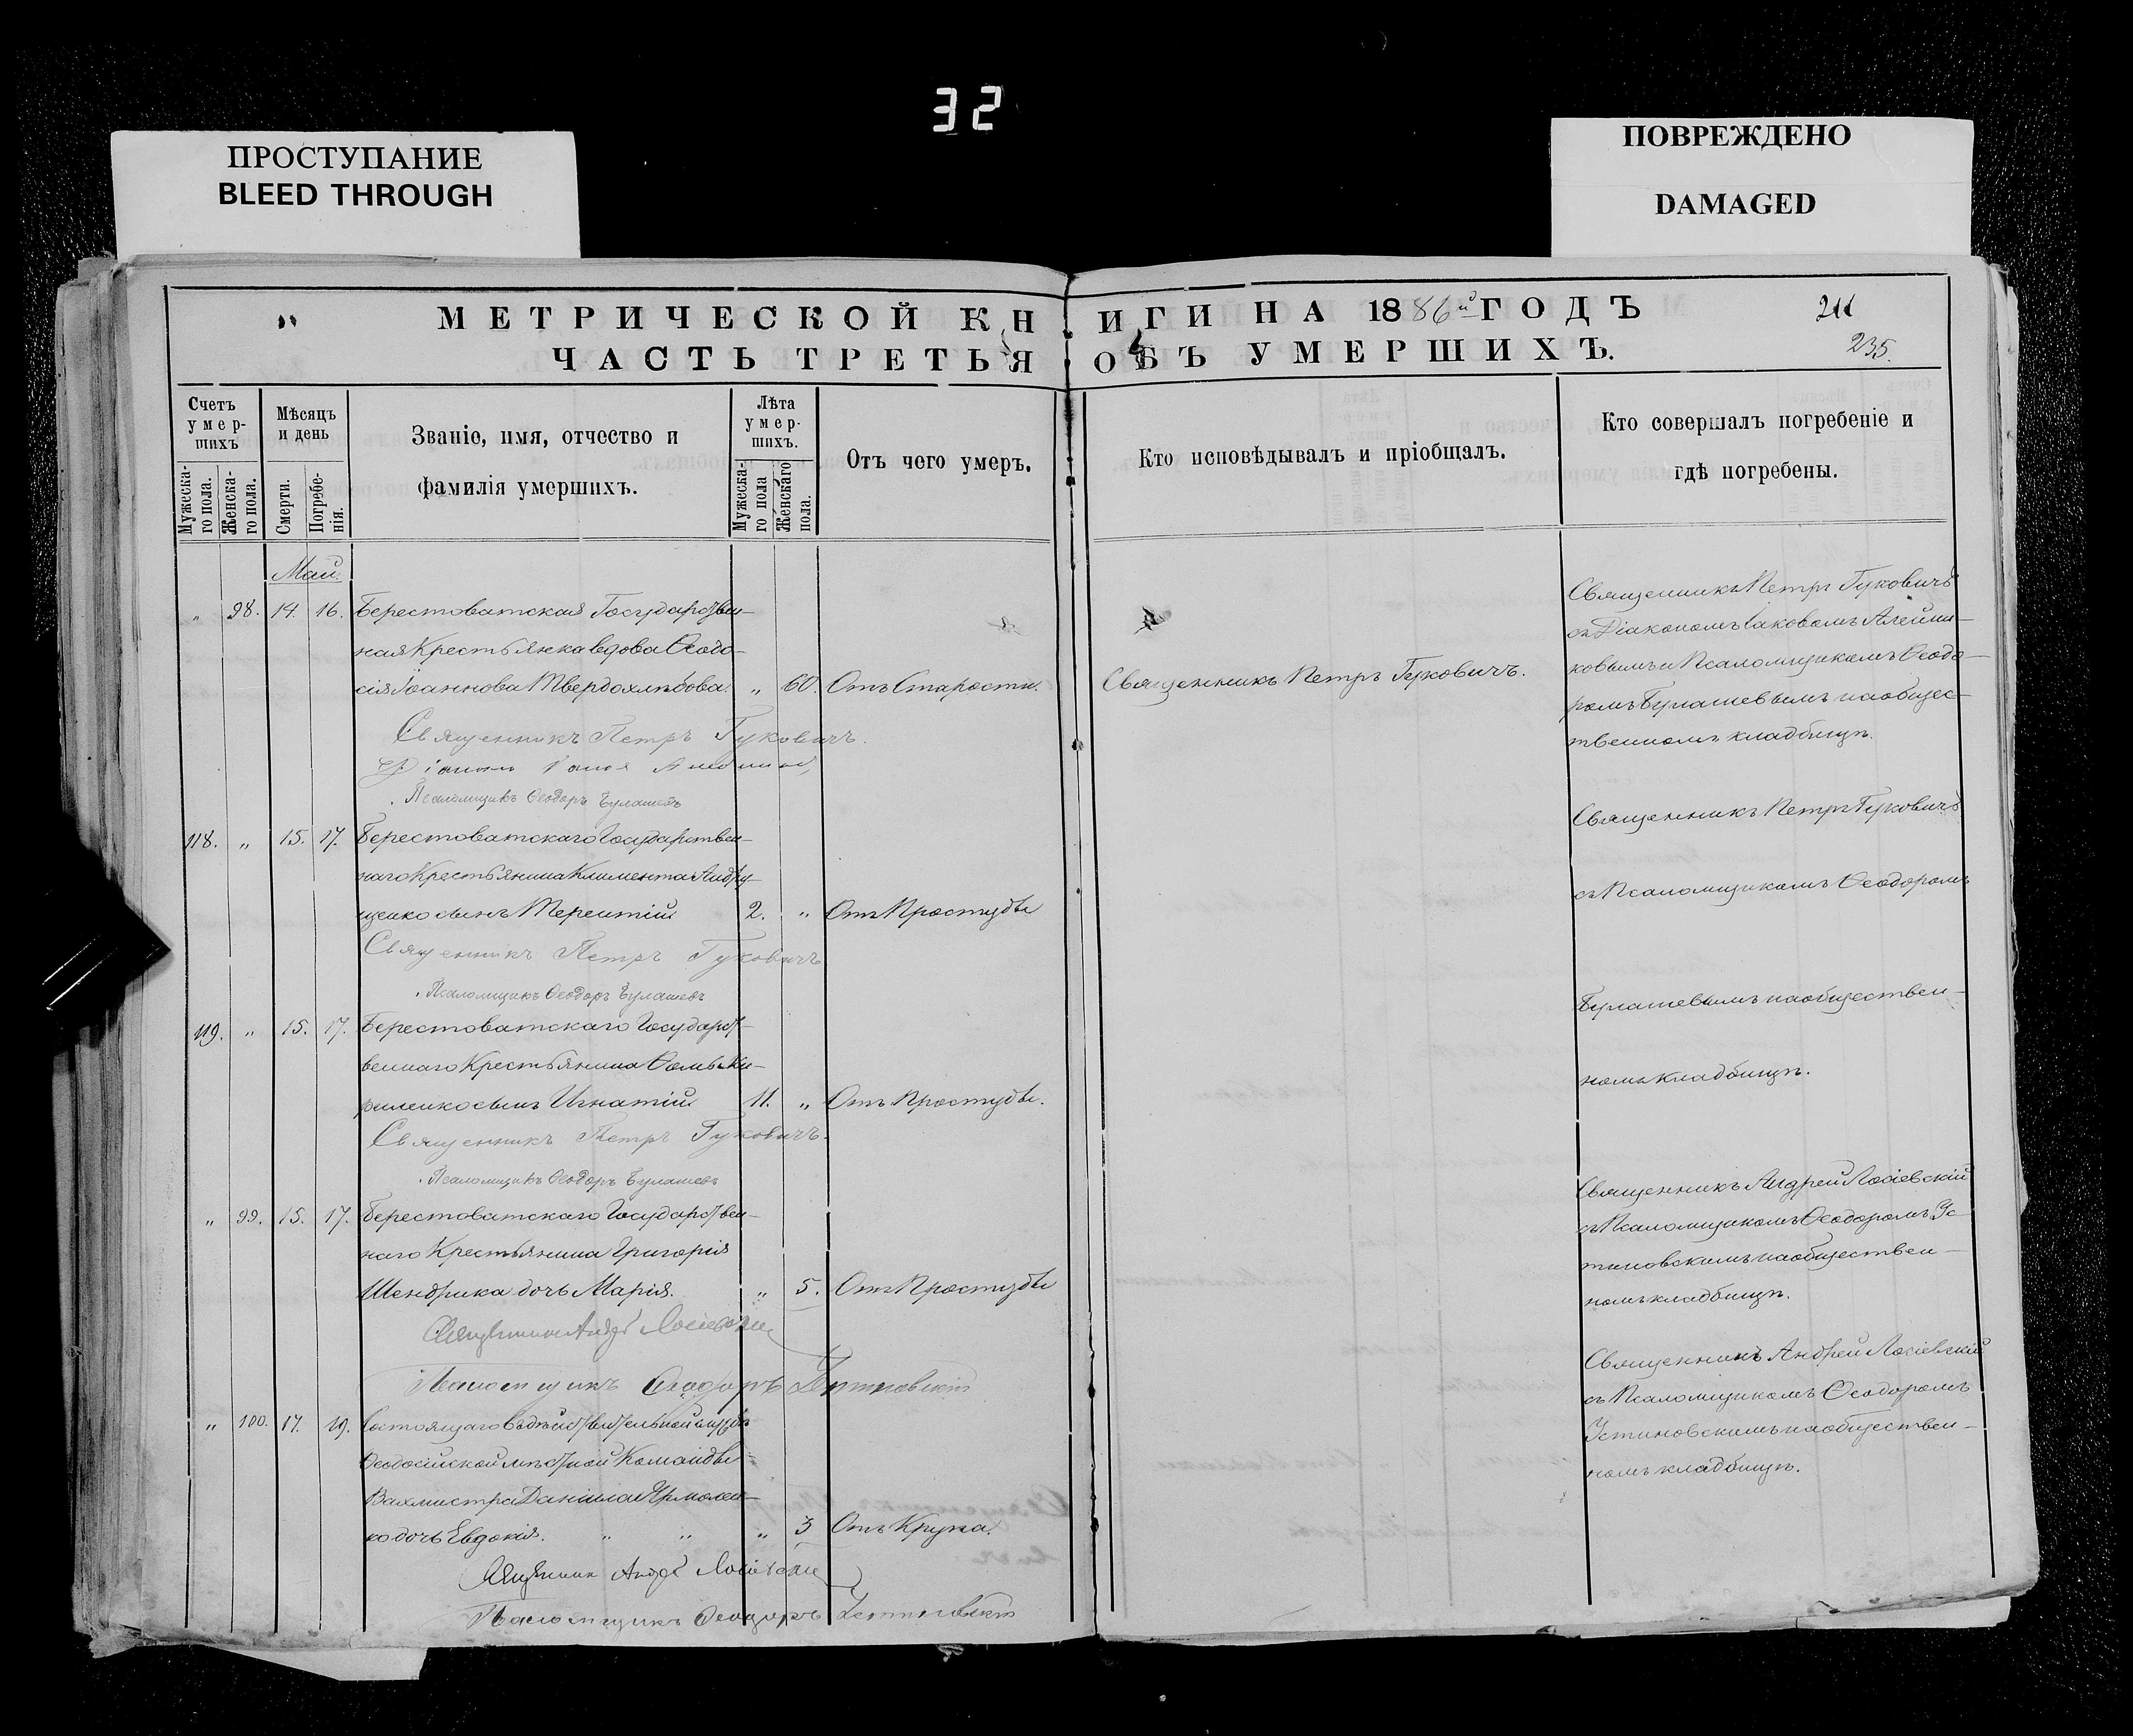 32
ПРОСТУПАНИЕ
BLEED THROUGH
ПОВРЕЖДЕНО
DAMAGED
МЕТРИЧЕСКОЙ КНИГИ НА 1886й ГОДЪ
211
ЧАСТЬ ТРЕТЬЯ ОБЪ УМЕРШИХЪ.
235.
Счетъ умер-шихъ
Мужеска-го пола.
Женска-го пола.
Мѣсяцъ и день
Смерти.
Погребе-нія.
Званіе, имя, отчество и
фамилія умершихъ.
Лѣта умер-шихъ.
Мужеска-го пола
Женскаго пола.
Отъ чего умеръ.
Кто исповѣдывалъ и пріобщалъ.
Кто совершалъ погребеніе и
гдѣ погребены.
Май.
„ 98. 14. 16. Берестоватская Государствен-
ная Крестьянка вдова Ѳеодо-
сія Іоаннова Твердохлѣбова. „ 60. Отъ Старости. Священникъ Петръ Гуковичъ.
Священникъ Петръ Гуковичъ
съ Діакономъ Іаковомъ Алейни-
ковымъ и Псаломщикомъ Ѳеодо-
ромъ Булашевымъ на общес-
твенномъ кладбищѣ.
Священникъ Петръ Гуковичъ.
Псаломщикъ Ѳеодоръ Булашевъ
118. „ 15. 17. Берестоватскаго Государствен-
наго Крестьянина Климента Андру-
щенко сынъ Терентій 2. „ Отъ Простуды
Священникъ Петръ Гуковичъ
съ Псаломщикомъ Ѳеодоромъ
Булашевымъ на обществен-
номъ кладбищѣ.
Священникъ Петръ Гуковичъ
Псаломщикъ Ѳеодоръ Булашевъ
119. „ 15. 17. Берестоватскаго Государст-
веннаго Крестьянина Ѳомы Ки-
риленко сынъ Игнатій 11. „ Отъ Простуды.
Священникъ Петръ Гуковичъ.
Псаломщикъ Ѳеодоръ Булашевъ
„ 99. 15. 17. Берестоватскаго Государствен-
наго Крестьянина Григорія
Шендрика дочь Марія. „ 5. Отъ Простуды
Священникъ Андрей Лосіевскій
съ Псаломщикомъ Ѳеодоромъ Ус-
тиновскимъ на обществен-
номъ кладбищѣ.
Священникъ Андрей Лосіевскій
Псаломщикъ Ѳеодоръ Устиновскій
„ 100. 17. 19. Состоящаго въ дѣйствительной службѣ
Ѳеодосійской мѣстной Команды
Вахмистра Даніила Ярмолен-
ко дочь Евдокія. „ „ „ 3 Отъ Крупа.
Священникъ Андрей Лосіевскій
съ Псаломщикомъ Ѳеодоромъ
Устиновскимъ на обществен-
номъ кладбищѣ.
Священникъ Андрей Лосіевскій
Псаломщикъ Ѳеодоръ Устиновскій